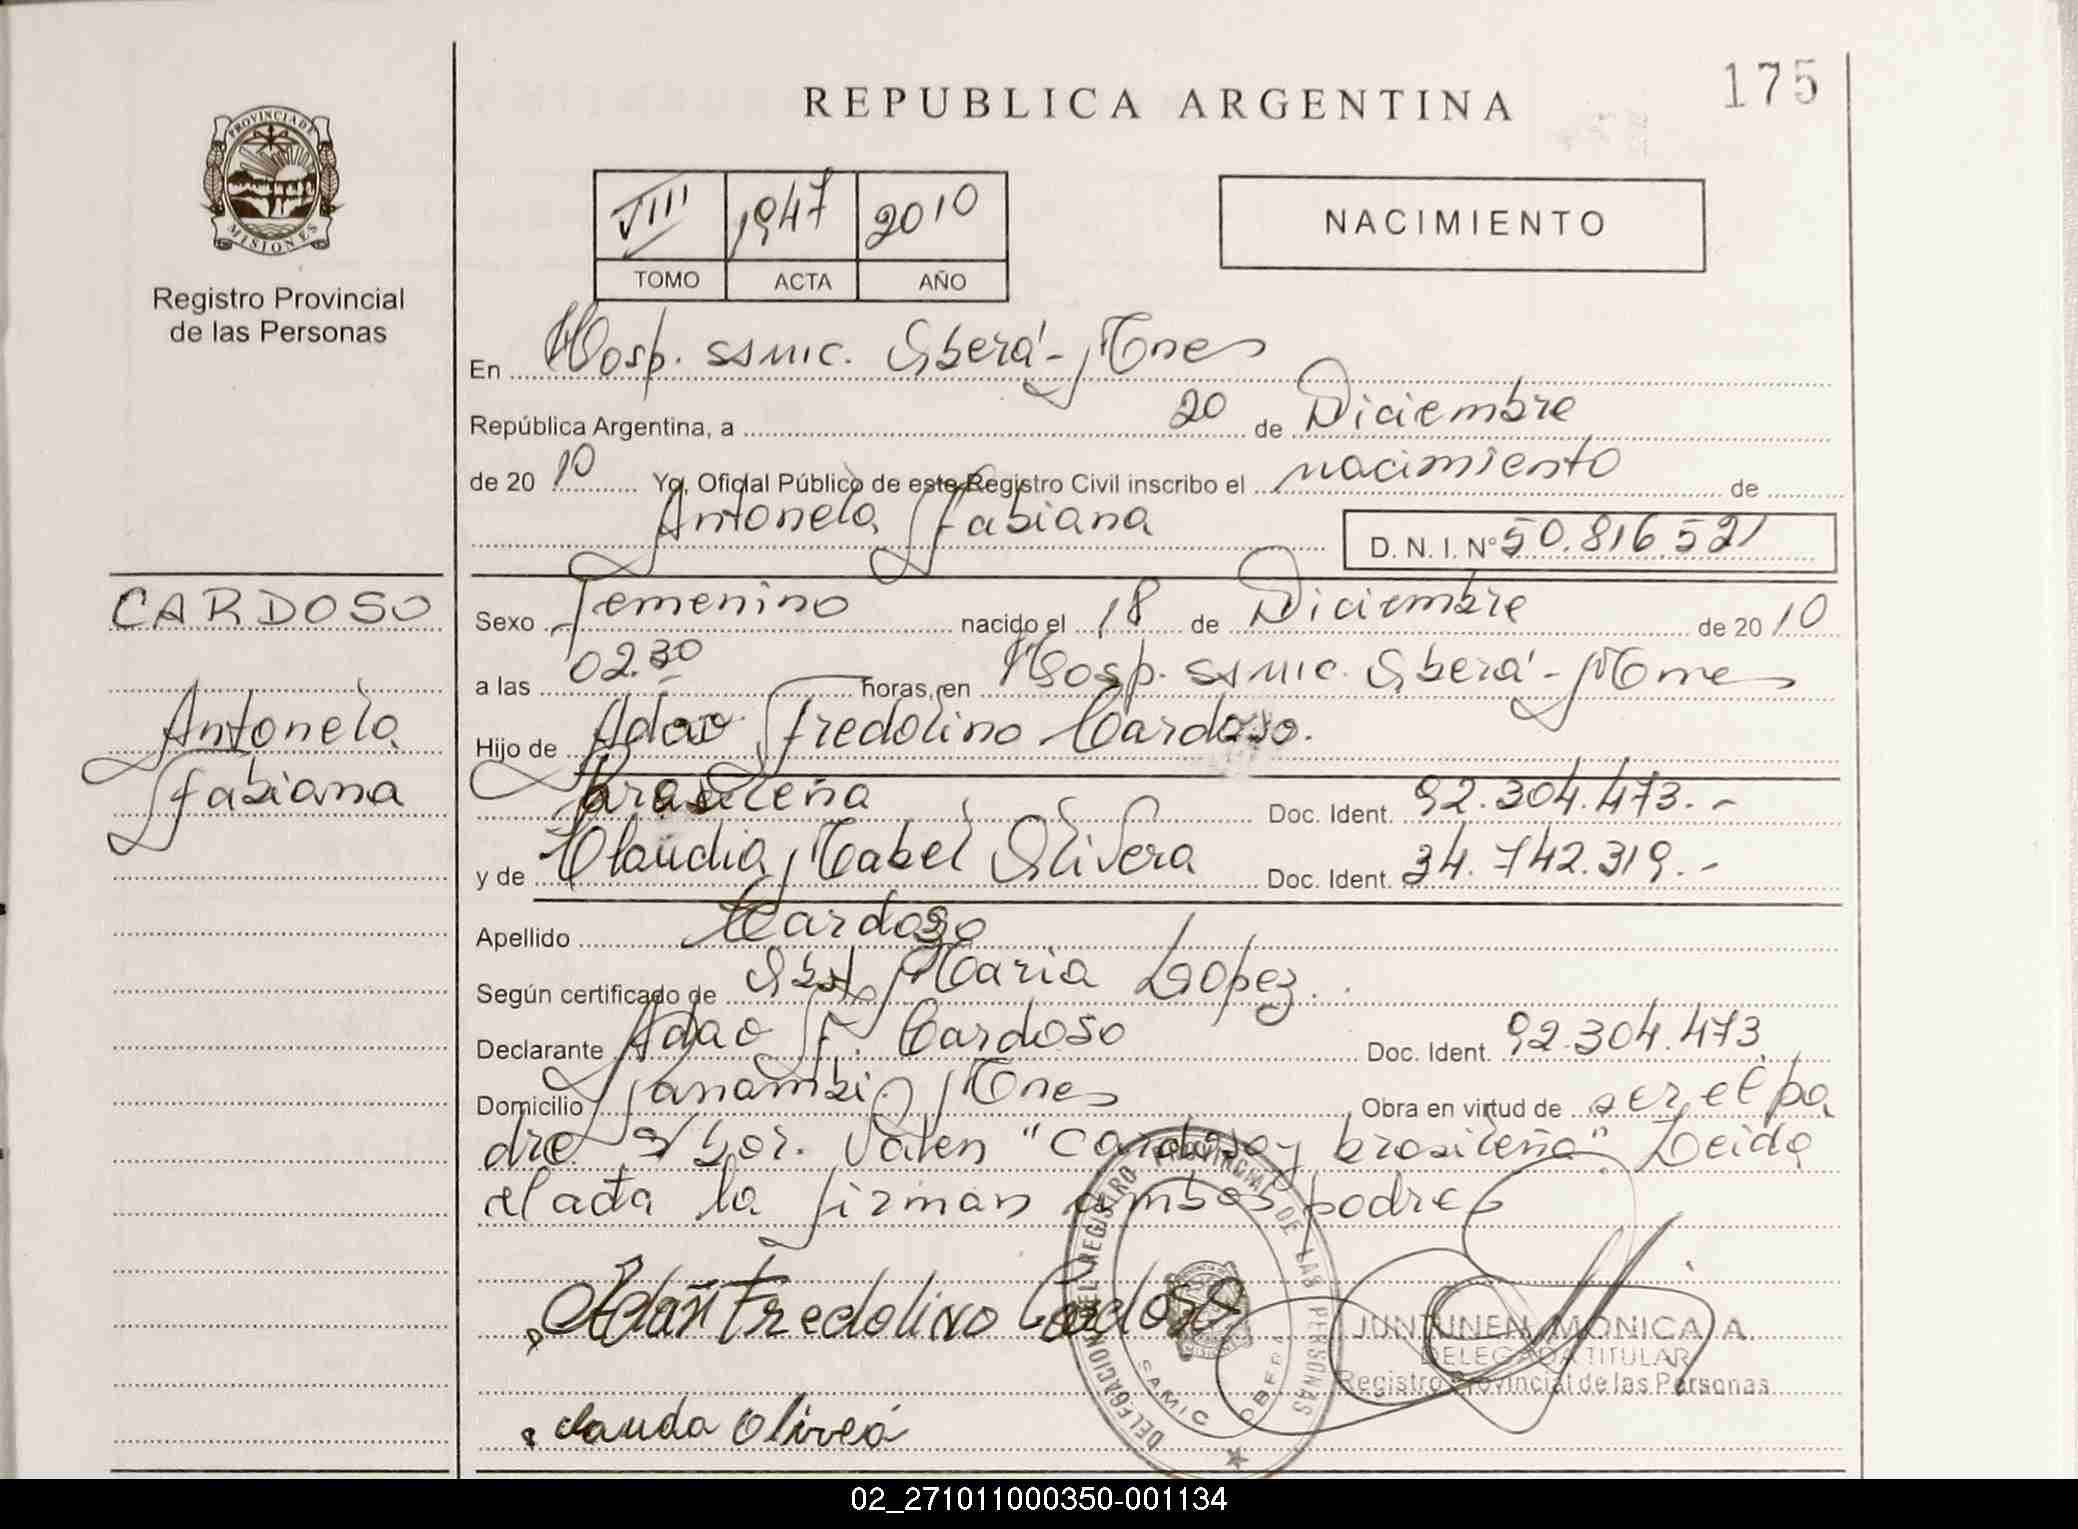 175
REPUBLICA ARGENTINA
PROVINCIA DE
MISIONES
Registro Provincial
de las Personas
VIII 1947 2010
TOMO ACTA AÑO
NACIMIENTO
En Hosp. SAMIC. Oberá - Mnes
República Argentina, a 20 de Diciembre
de 20 10 Yo, Oficial Público de este Registro Civil inscribo el nacimiento de
Antonela Fabiana
D. N. I. N° 50.816.521
CARDOSO
Antonela
Fabiana
Sexo Femenino nacido el 18 de Diciembre de 20 10
a las 02.30 horas, en Hosp. SAMIC. Oberá - Mnes
Hijo de Adao Fredolino Cardoso.
brasileña Doc. Ident. 92.304.473.-
y de Claudia Mabel Olivera Doc. Ident. 34.742.319.-
Apellido Cardoso
Según certificado de Obst. Maria Lopez.
Declarante Adao F. Cardoso Doc. Ident. 92.304.473.
Domicilio Panambi. Mnes Obra en virtud de ser el pa
dre. S/bor. Valen "Cardoso y brasileña". Leida
el acta la firman ambos padres
Fredolino Cardoso
DELEGACION DEL REGISTRO PROVINCIAL DE LAS PERSONAS
SAMIC OBERA
JUNTUNEN MONICA A.
DELEGADA TITULAR
Registro Provincial de las Personas
02_271011000350-001134